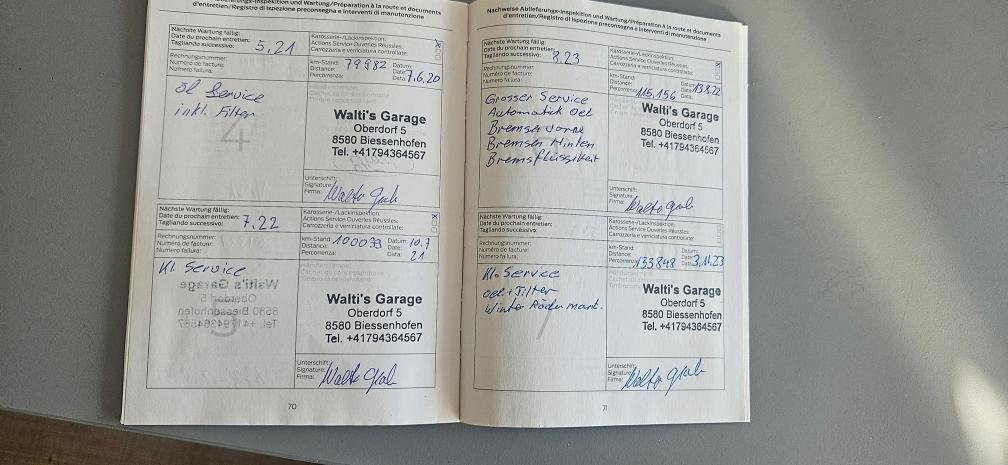 d'entretien/Registro di ispezione preconsegna e interventi di manutenzione
Nächste Wartung fällig:
Date du prochain entretien:
Tagliando successivo:
5.21
Karosserie-/Lackinspektion:
Actions Service Ouvertes Réussies:
Carrozzeria e verniciatura controllate:
x
Rechnungsnummer:
Numéro de facture:
Numero fattura:
km-Stand:
Distance:
Percorrenza:
79982
Datum:
Date:
Data:
7.6.20
öl Service
inkl. Filter
4
Walti's Garage
Oberdorf 5
8580 Biessenhofen
Tel. +41794364567
Unterschrift:
Signature:
Firma:
Walto Grab
Nächste Wartung fällig:
Date du prochain entretien:
Tagliando successivo:
7.22
Karosserie-/Lackinspektion:
Actions Service Ouvertes Réussies:
Carrozzeria e verniciatura controllate:
x
Rechnungsnummer:
Numéro de facture:
Numero fattura:
km-Stand:
Distance:
Percorrenza:
Datum:
Date:
Data:
10.7
21
Kl. Service
Walti's Garage
Oberdorf 5
8580 Biessenhofen
Tel. +41794364567
Unterschrift:
Signature:
Firma:
Walto Grab
70
Nachweise Ablieferungs-Inspektion und Wartung/Préparation à la route et documents
d'entretien/Registro di ispezione preconsegna e interventi di manutenzione
Nächste Wartung fällig:
Date du prochain entretien:
Tagliando successivo:
8.23
Karosserie-/Lackinspektion:
Actions Service Ouvertes Réussies:
Carrozzeria e verniciatura controllate:
x
Rechnungsnummer:
Numéro de facture:
Numero fattura:
km-Stand
Distance:
Percorrenza:
115.156
Datum:
Date:
Data:
13.8.22
Grosser Service
Automatick oel
Bremsen vorne
Bremsen Hinten
Bremsflüssikeit
Walti's Garage
Oberdorf 5
8580 Biessenhofen
Tel. +41794364567
Unterschrift:
Signature:
Firma:
Walto Grab
Nächste Wartung fällig:
Date du prochain entretien:
Tagliando successivo:
Karosserie-/Lackinspektion:
Actions Service Ouvertes Réussies:
Carrozzeria e verniciatura controllate:
Rechnungsnummer:
Numéro de facture:
Numero fattura:
km-Stand
Distance:
Percorrenza:
133848
Datum:
Date:
Data:
3.11.23
Kl. Service
oel + Filter
Winter Räder mont.
7
Walti's Garage
Oberdorf 5
8580 Biessenhofen
Tel. +41794364567
Unterschrift:
Signature:
Firma:
Walto Grab
71